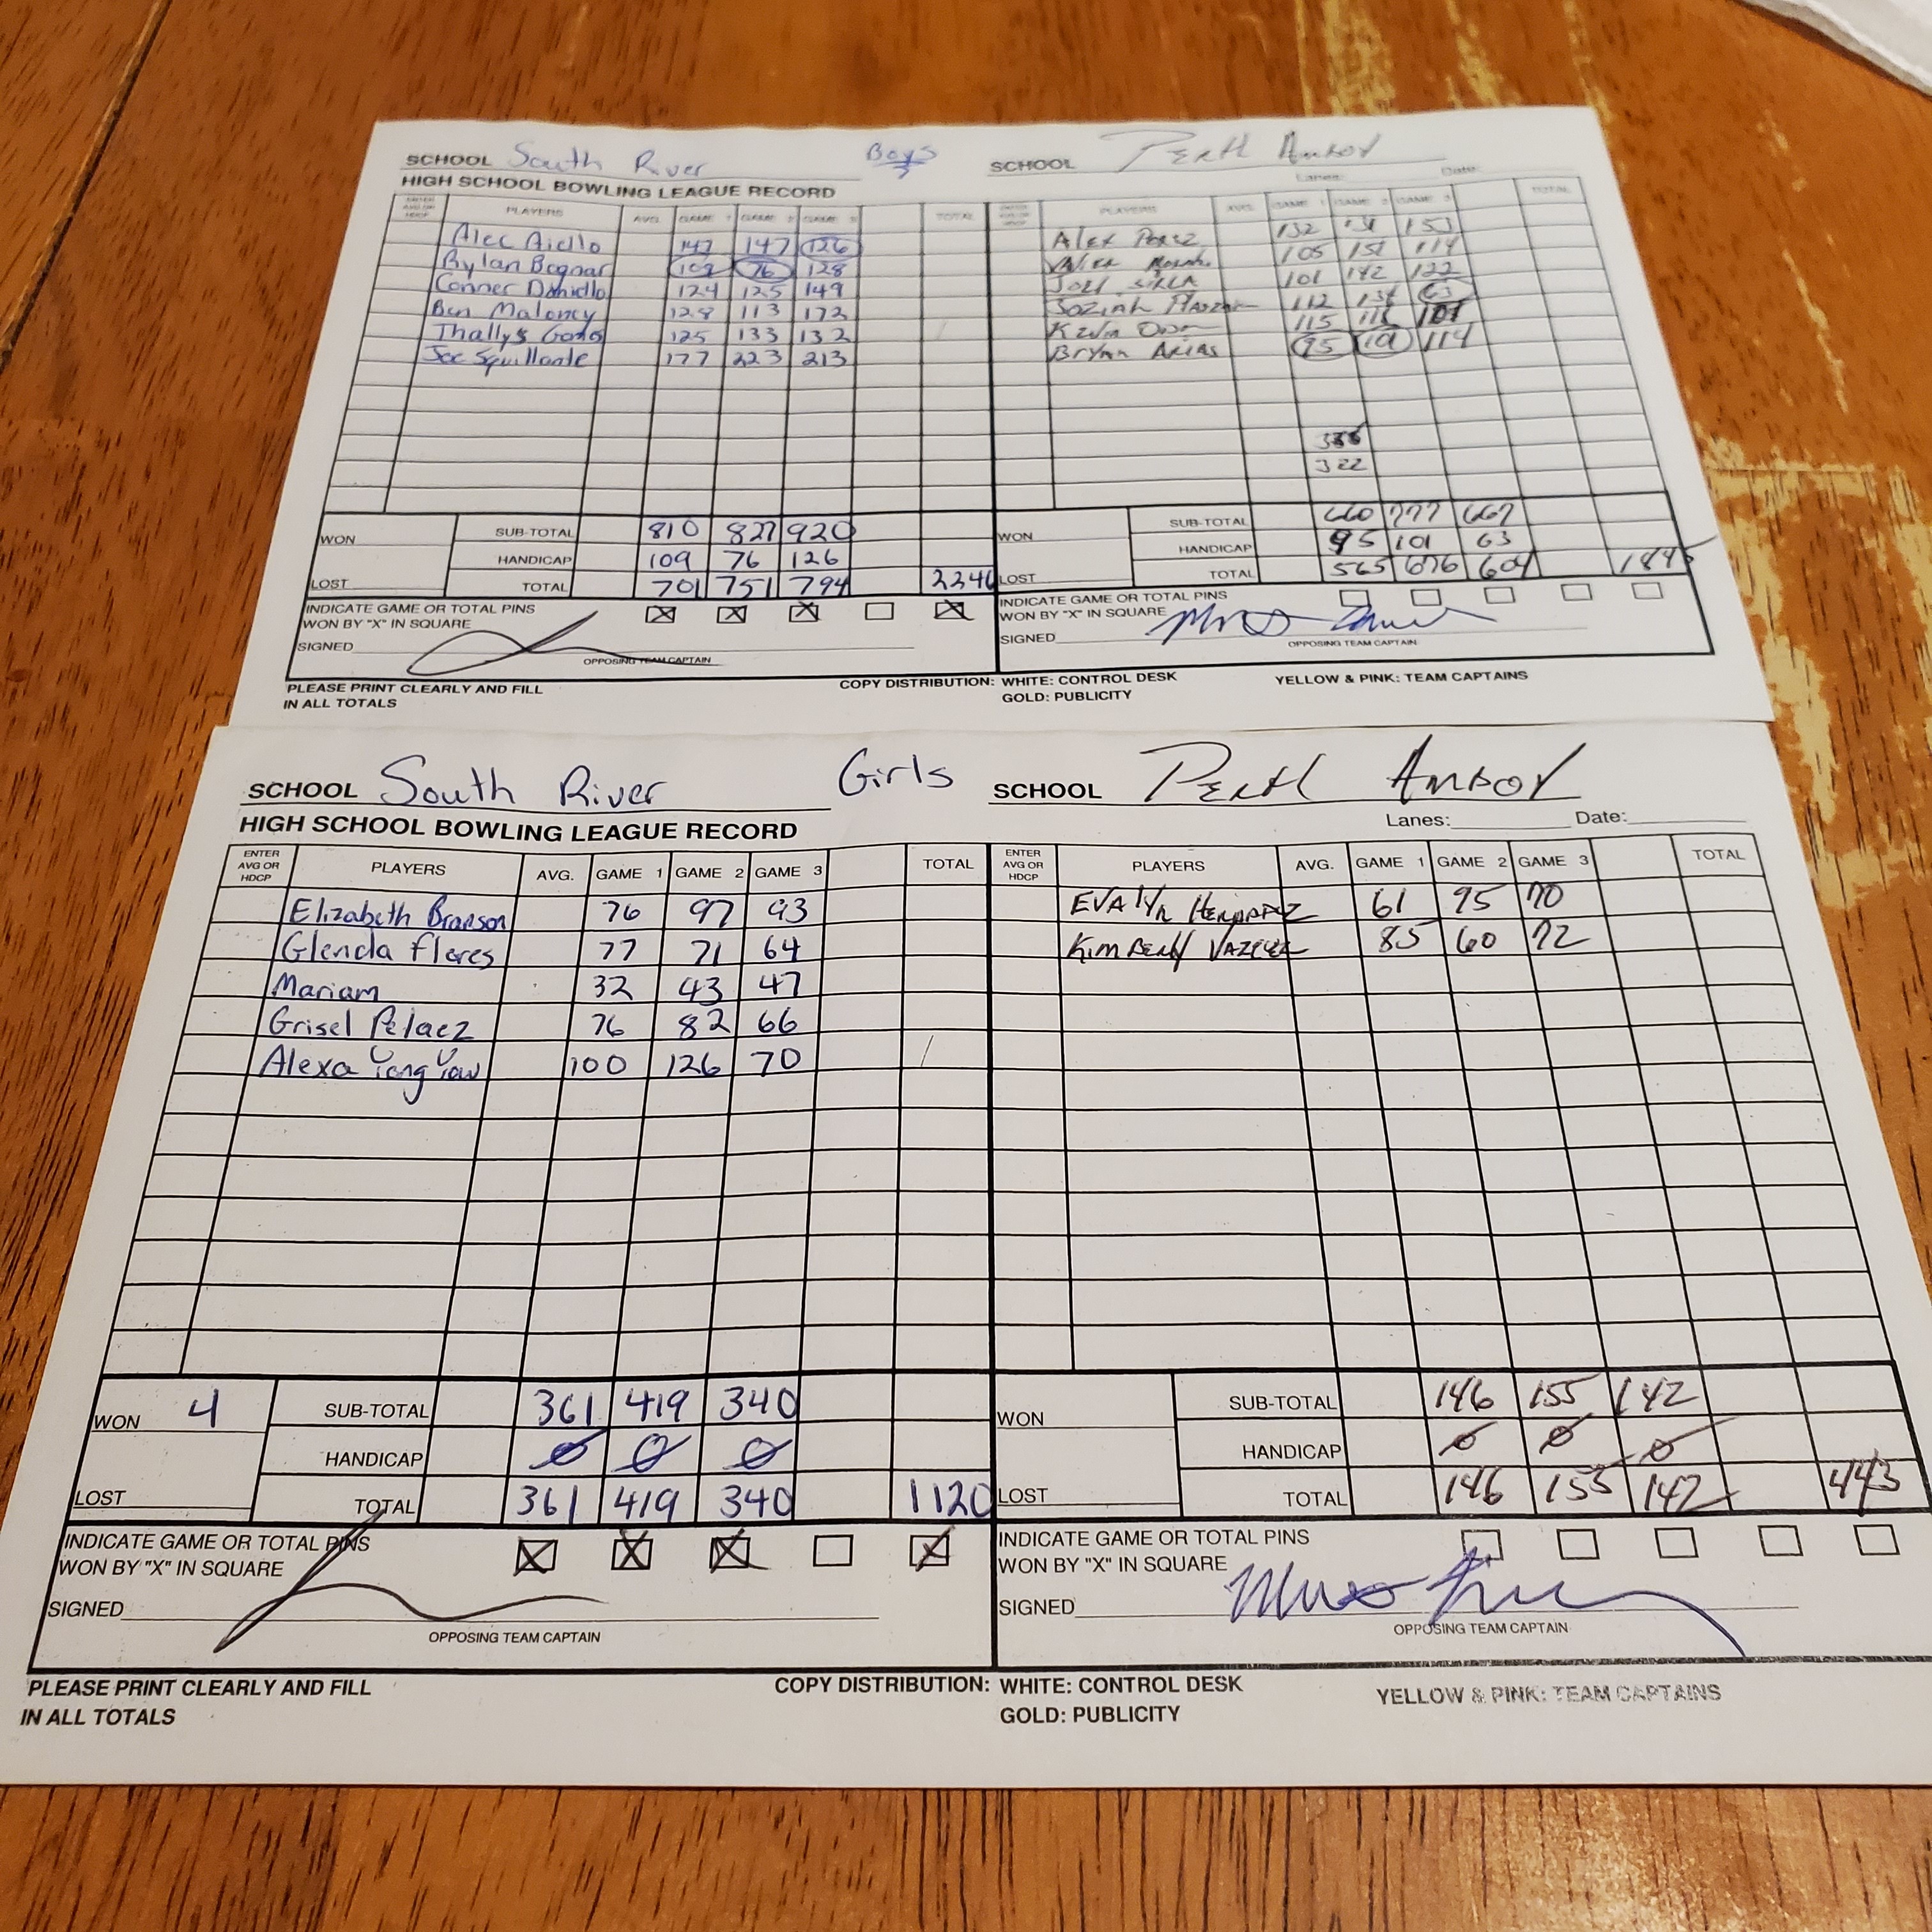 SCHOOL South River Boys SCHOOL Perth Amboy
HIGH SCHOOL BOWLING LEAGUE RECORD Lanes: Date:
ENTER AVG OR HDCP PLAYERS AVG. GAME 1 GAME 2 GAME 3 TOTAL PLAYERS AVG. GAME 1 GAME 2 GAME 3 TOTAL
Alec Aiello 147 147 126 Alex Perez 132 131 153
Rylan Bognar 109 76 128 105 151 114
Conner Daniello 124 125 149 Joel 101 142 122
Ben Maloney 128 113 172 Joziah 112 63
Thallys 125 133 132 115 107
Joe Squillante 177 223 213 Bryan Arias 95 101 114
322
WON SUB-TOTAL 810 827 920 WON SUB-TOTAL 660 777 667
HANDICAP 109 76 126 HANDICAP 95 101 63
LOST TOTAL 701 751 794 2246 LOST TOTAL 565 676 604 1845
INDICATE GAME OR TOTAL PINS INDICATE GAME OR TOTAL PINS
WON BY "X" IN SQUARE WON BY "X" IN SQUARE
SIGNED SIGNED
OPPOSING TEAM CAPTAIN OPPOSING TEAM CAPTAIN
PLEASE PRINT CLEARLY AND FILL COPY DISTRIBUTION: WHITE: CONTROL DESK YELLOW & PINK: TEAM CAPTAINS
IN ALL TOTALS GOLD: PUBLICITY
SCHOOL South River Girls SCHOOL Perth Amboy
HIGH SCHOOL BOWLING LEAGUE RECORD Lanes: Date:
ENTER AVG OR HDCP PLAYERS AVG. GAME 1 GAME 2 GAME 3 TOTAL ENTER AVG OR HDCP PLAYERS AVG. GAME 1 GAME 2 GAME 3 TOTAL
Elizabeth Branson 76 97 93 Evalyn Hernandez 61 95 70
Glenda Flores 77 71 64 Kimberly 85 60 72
Mariam 32 43 47
Grisel Pelaez 76 82 66
Alexa 100 126 70
WON 4 SUB-TOTAL 361 419 340 WON SUB-TOTAL 146 155 142
HANDICAP 0 0 0 HANDICAP 0 0 0
LOST TOTAL 361 419 340 1120 LOST TOTAL 146 155 142 443
INDICATE GAME OR TOTAL PINS INDICATE GAME OR TOTAL PINS
WON BY "X" IN SQUARE WON BY "X" IN SQUARE
SIGNED SIGNED
OPPOSING TEAM CAPTAIN OPPOSING TEAM CAPTAIN
PLEASE PRINT CLEARLY AND FILL COPY DISTRIBUTION: WHITE: CONTROL DESK YELLOW & PINK: TEAM CAPTAINS
IN ALL TOTALS GOLD: PUBLICITY